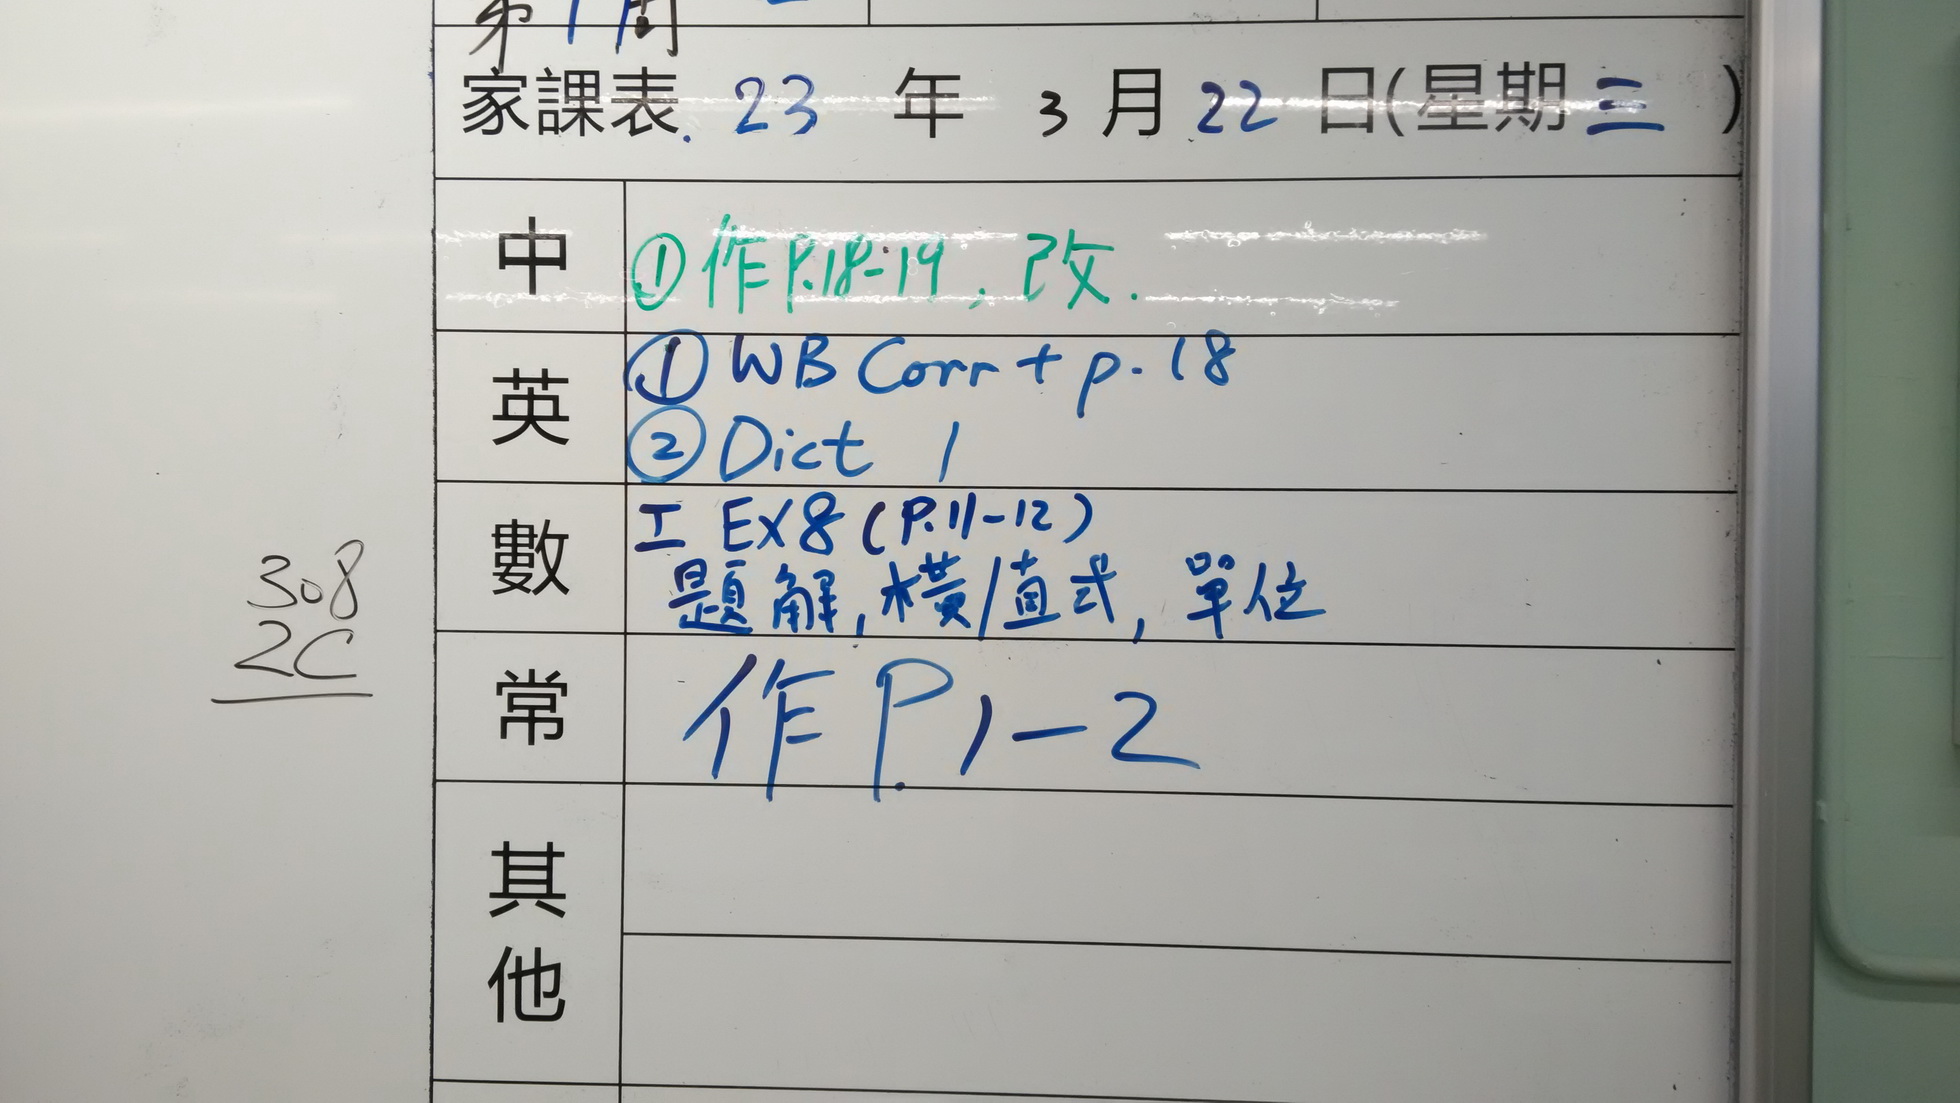 第1周
家課表. 23 年 3 月 22 日(星期三)
中
①作P.18-19, 改.
英
① WB Corr + p.18
② Dict 1
數
工 EX8 (P.11-12)
題解, 橫/直式, 單位
常
作P.1-2
其他
308
2C